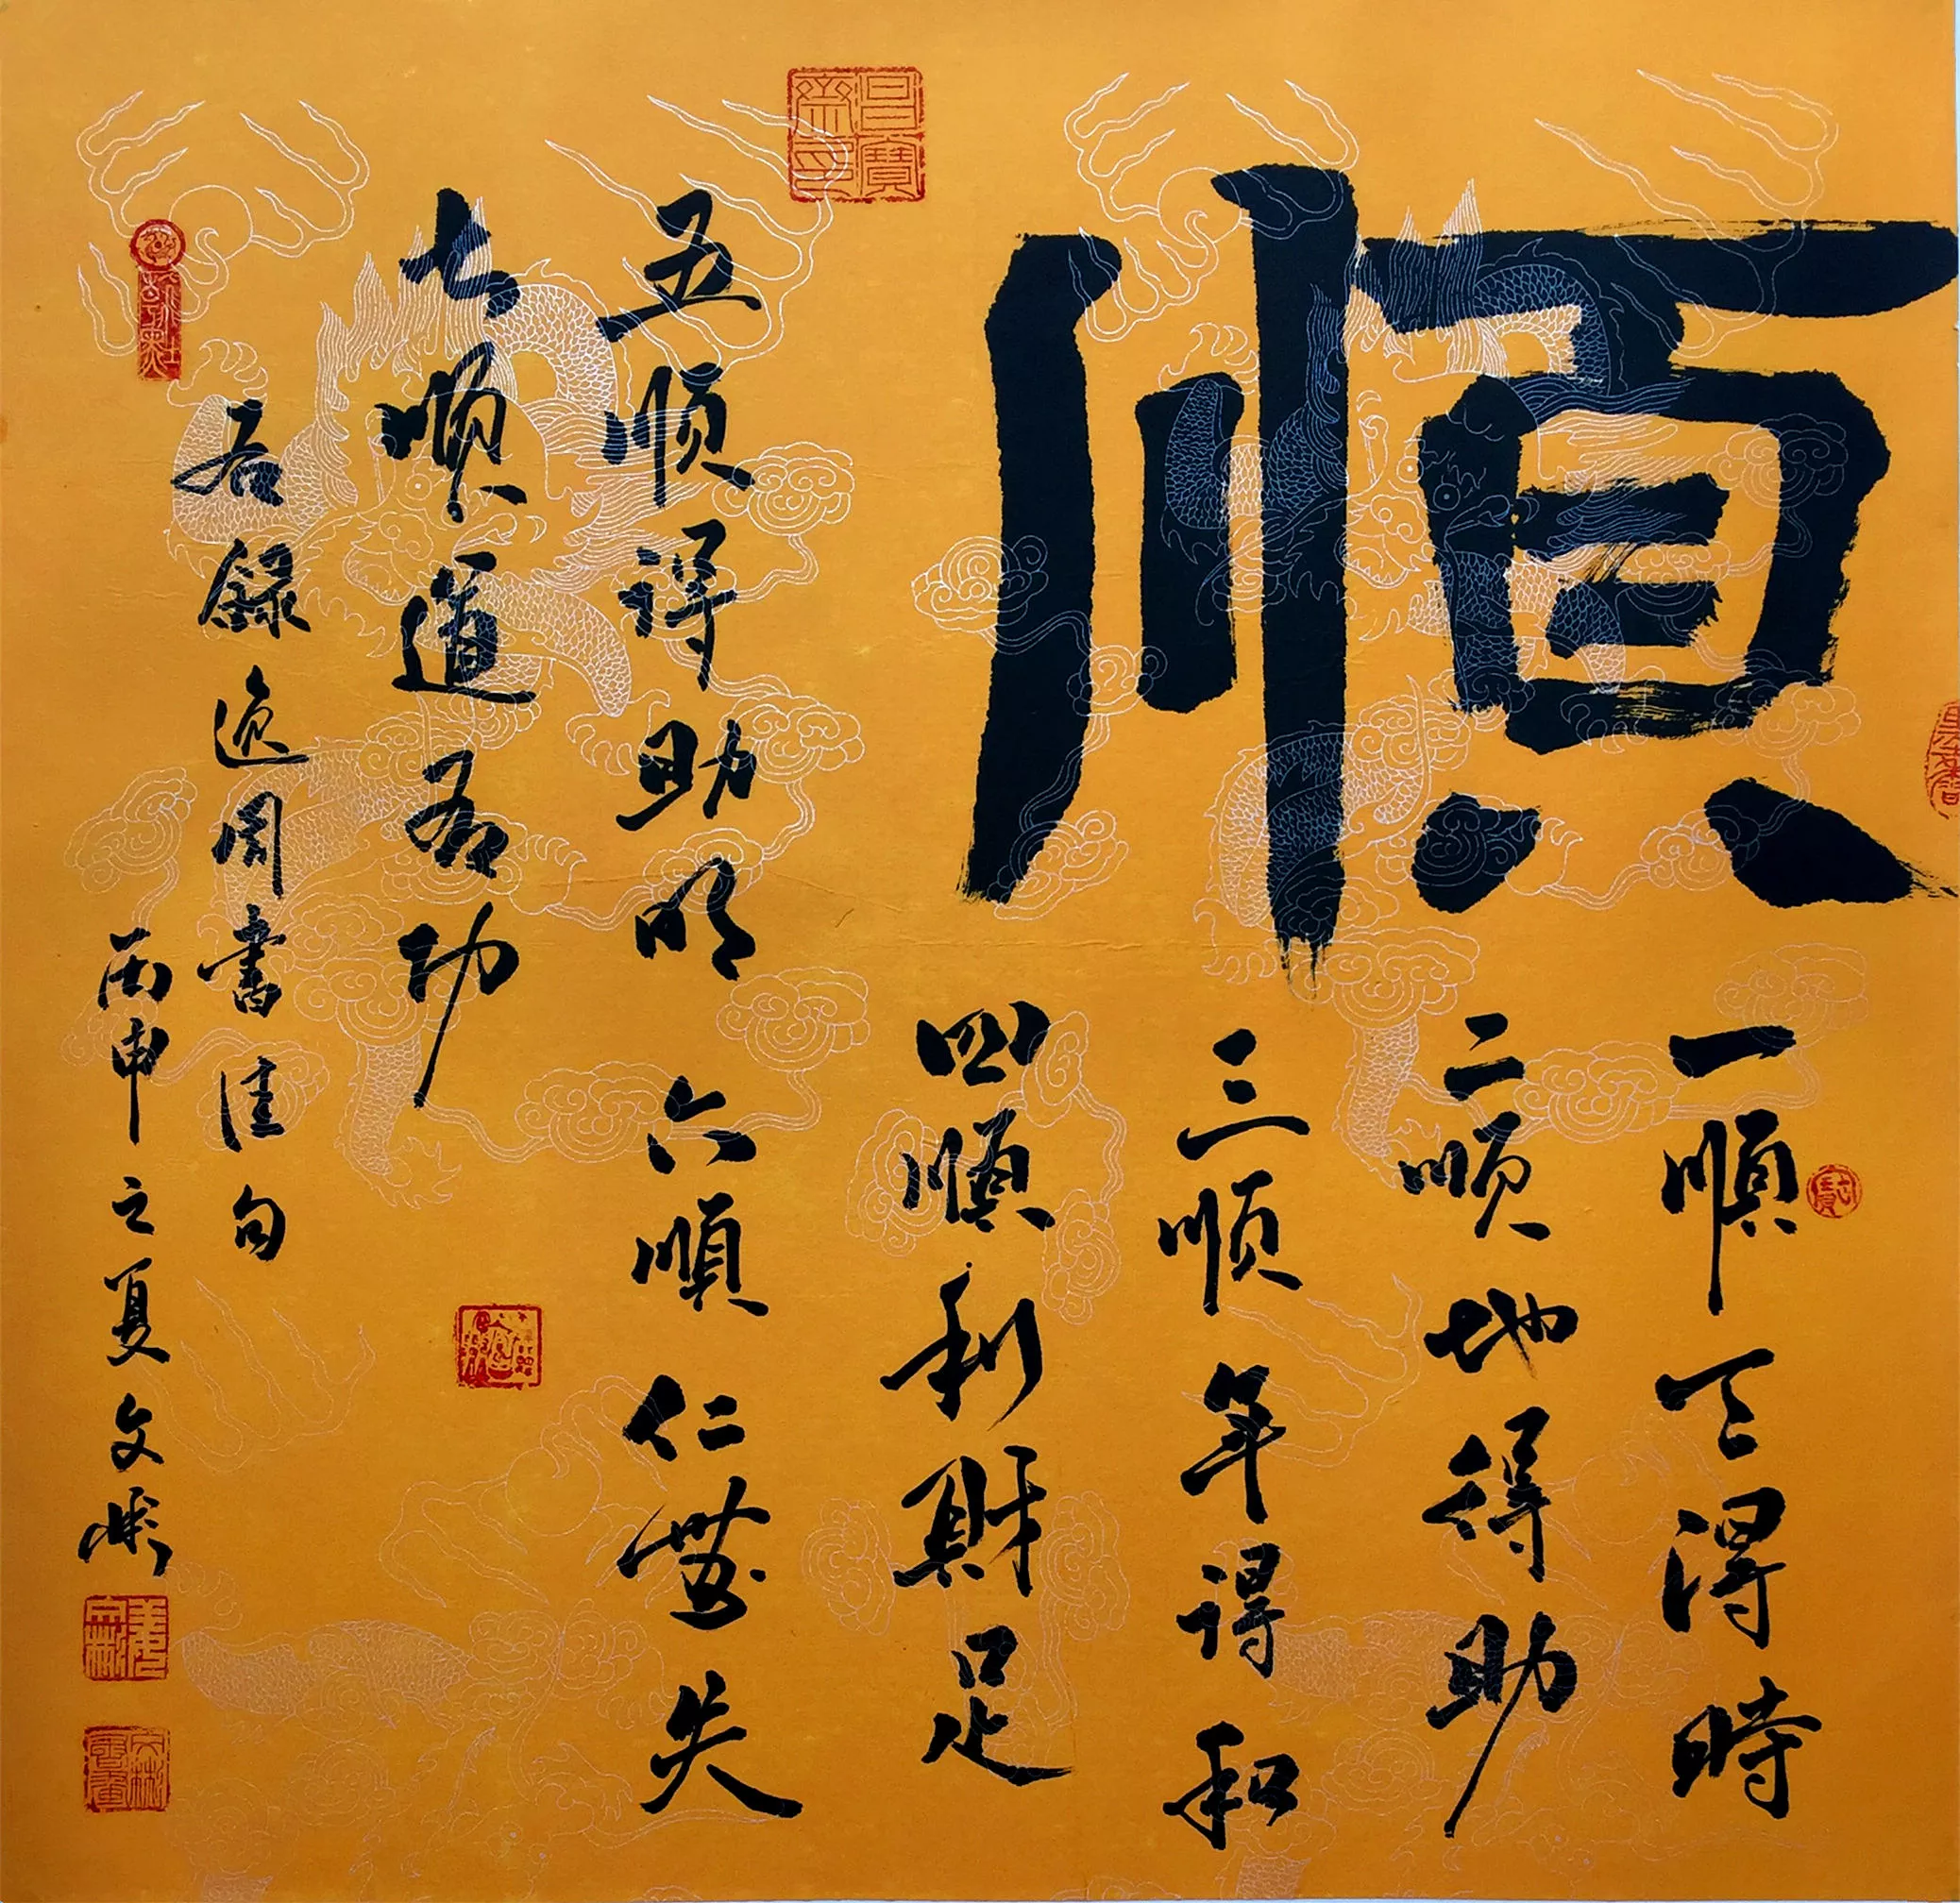 順
一順天得時
二順地得助
三順年得和
四順利財足
五順得助明 六順仁無失
七順道有功
右錄逸周書佳句
丙申之夏文彬